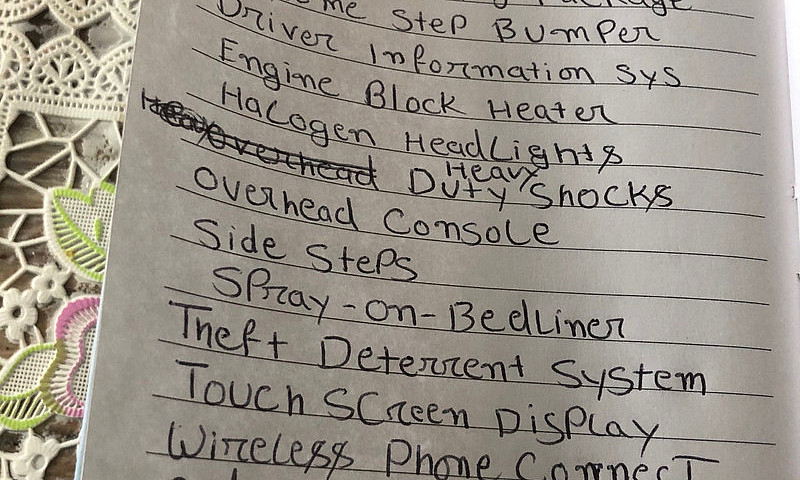 Package
me Step Bumper
Driver Information Sys
Engine Block Heater
Halogen HeadLights
Heavy Duty Shocks
Overhead Console
Side Steps
Spray-on-BedLiner
Theft Deterrent System
Touch Screen Display
Wireless Phone Connect